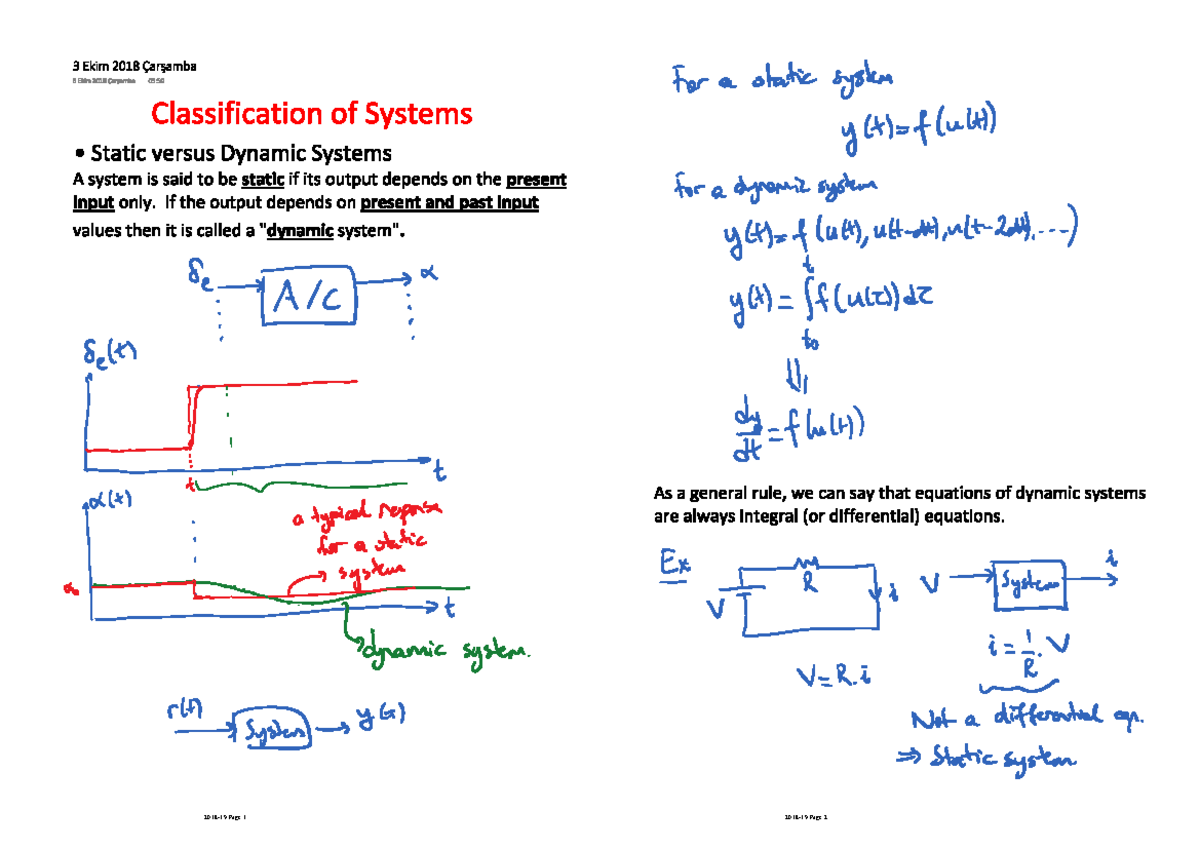 3 Ekim 2018 Çarşamba
3 Ekim 2018 Çarşamba 09:50
Classification of Systems
• Static versus Dynamic Systems
A system is said to be static if its output depends on the present
input only. If the output depends on present and past input
values then it is called a "dynamic system".
δe A/C α
δe(t)
t
t
α(t)
a typical reponse
for a static
system
α
t
dynamic system.
r(t) System y(t)
2018-19 Page 1
For a static system
y(t)=f(u(t))
For a dynamic system
y(t)=f(u(t), u(t-dt), u(t-2dt), ...)
t
y(t) = ∫f(u(τ))dτ
to
⇓
dy/dt = f(u(t))
As a general rule, we can say that equations of dynamic systems
are always integral (or differential) equations.
Ex
V R i V System i
V=R.i
i = 1/R . V
Not a differential eqn.
⇒ Static system
2018-19 Page 2